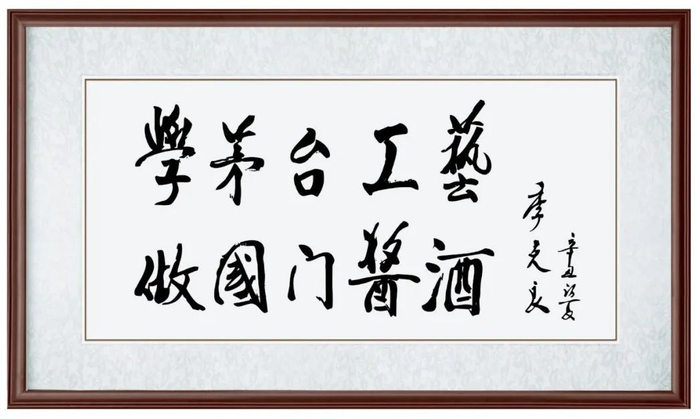 學茅台工藝
做國门醬酒
季克良
辛丑 夏